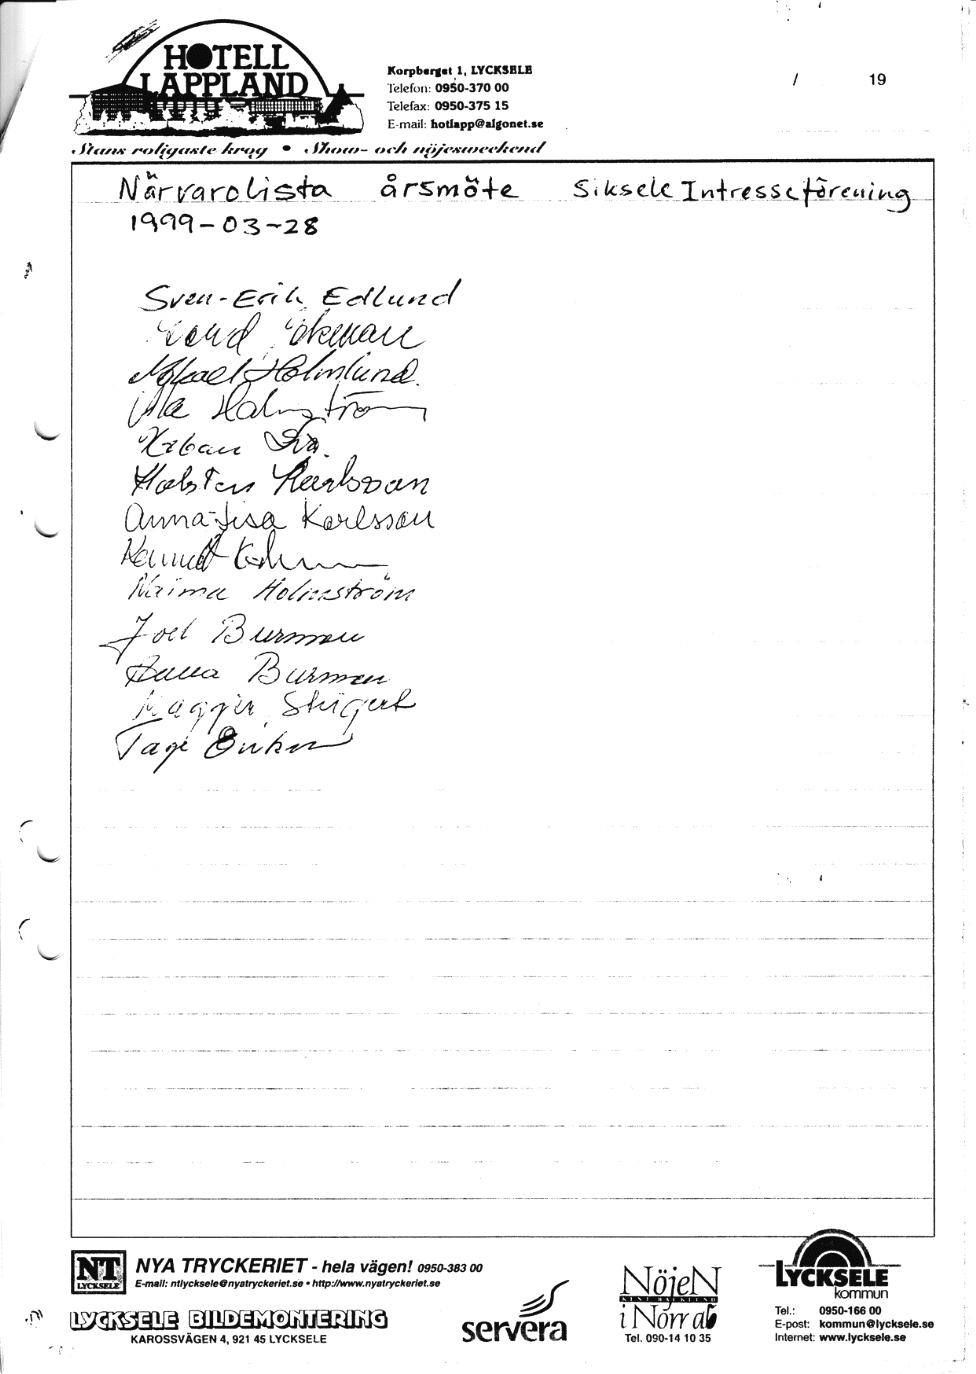 HOTELL
LAPPLAND
Korpberget 1, LYCKSELE
Telefon: 0950-370 00
Telefax: 0950-375 15
E-mail: hotlapp@algonet.se
/ 19
Stans roligaste krog • Show- och nöjesweekend
Närvarolista årsmöte Siksele Intresseförening
1999-03-28
Sven-Erik Edlund
Mikael Holmlund
Ulla Holmström
Urban
Halsten Karlsson
Anna-Lisa Karlsson
Naima Holmström
Joel Burman
Anna Burman
Tage
NT
LYCKSELE
NYA TRYCKERIET - hela vägen! 0950-383 00
E-mail: ntlycksele@nyatryckeriet.se • http://www.nyatryckeriet.se
LYCKSELE BILDEMONTERING
KAROSSVÄGEN 4, 921 45 LYCKSELE
servera
NöjeN
i Norr ab
Tel. 090-14 10 35
LYCKSELE
kommun
Tel.: 0950-166 00
E-post: kommun@lycksele.se
Internet: www.lycksele.se